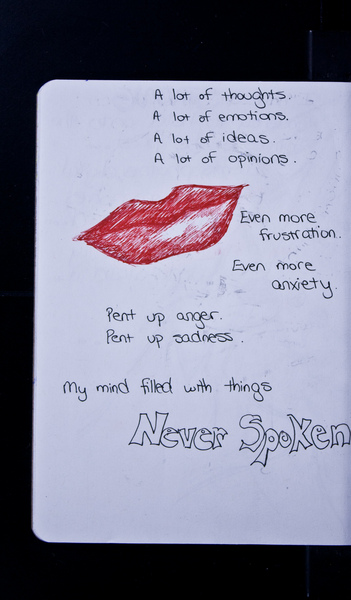 A lot of thoughts.
A lot of emotions.
A lot of ideas.
A lot of opinions.
Even more
frustration.
Even more
anxiety.
Pent up anger.
Pent up sadness.
My mind filled with things
Never Spoken